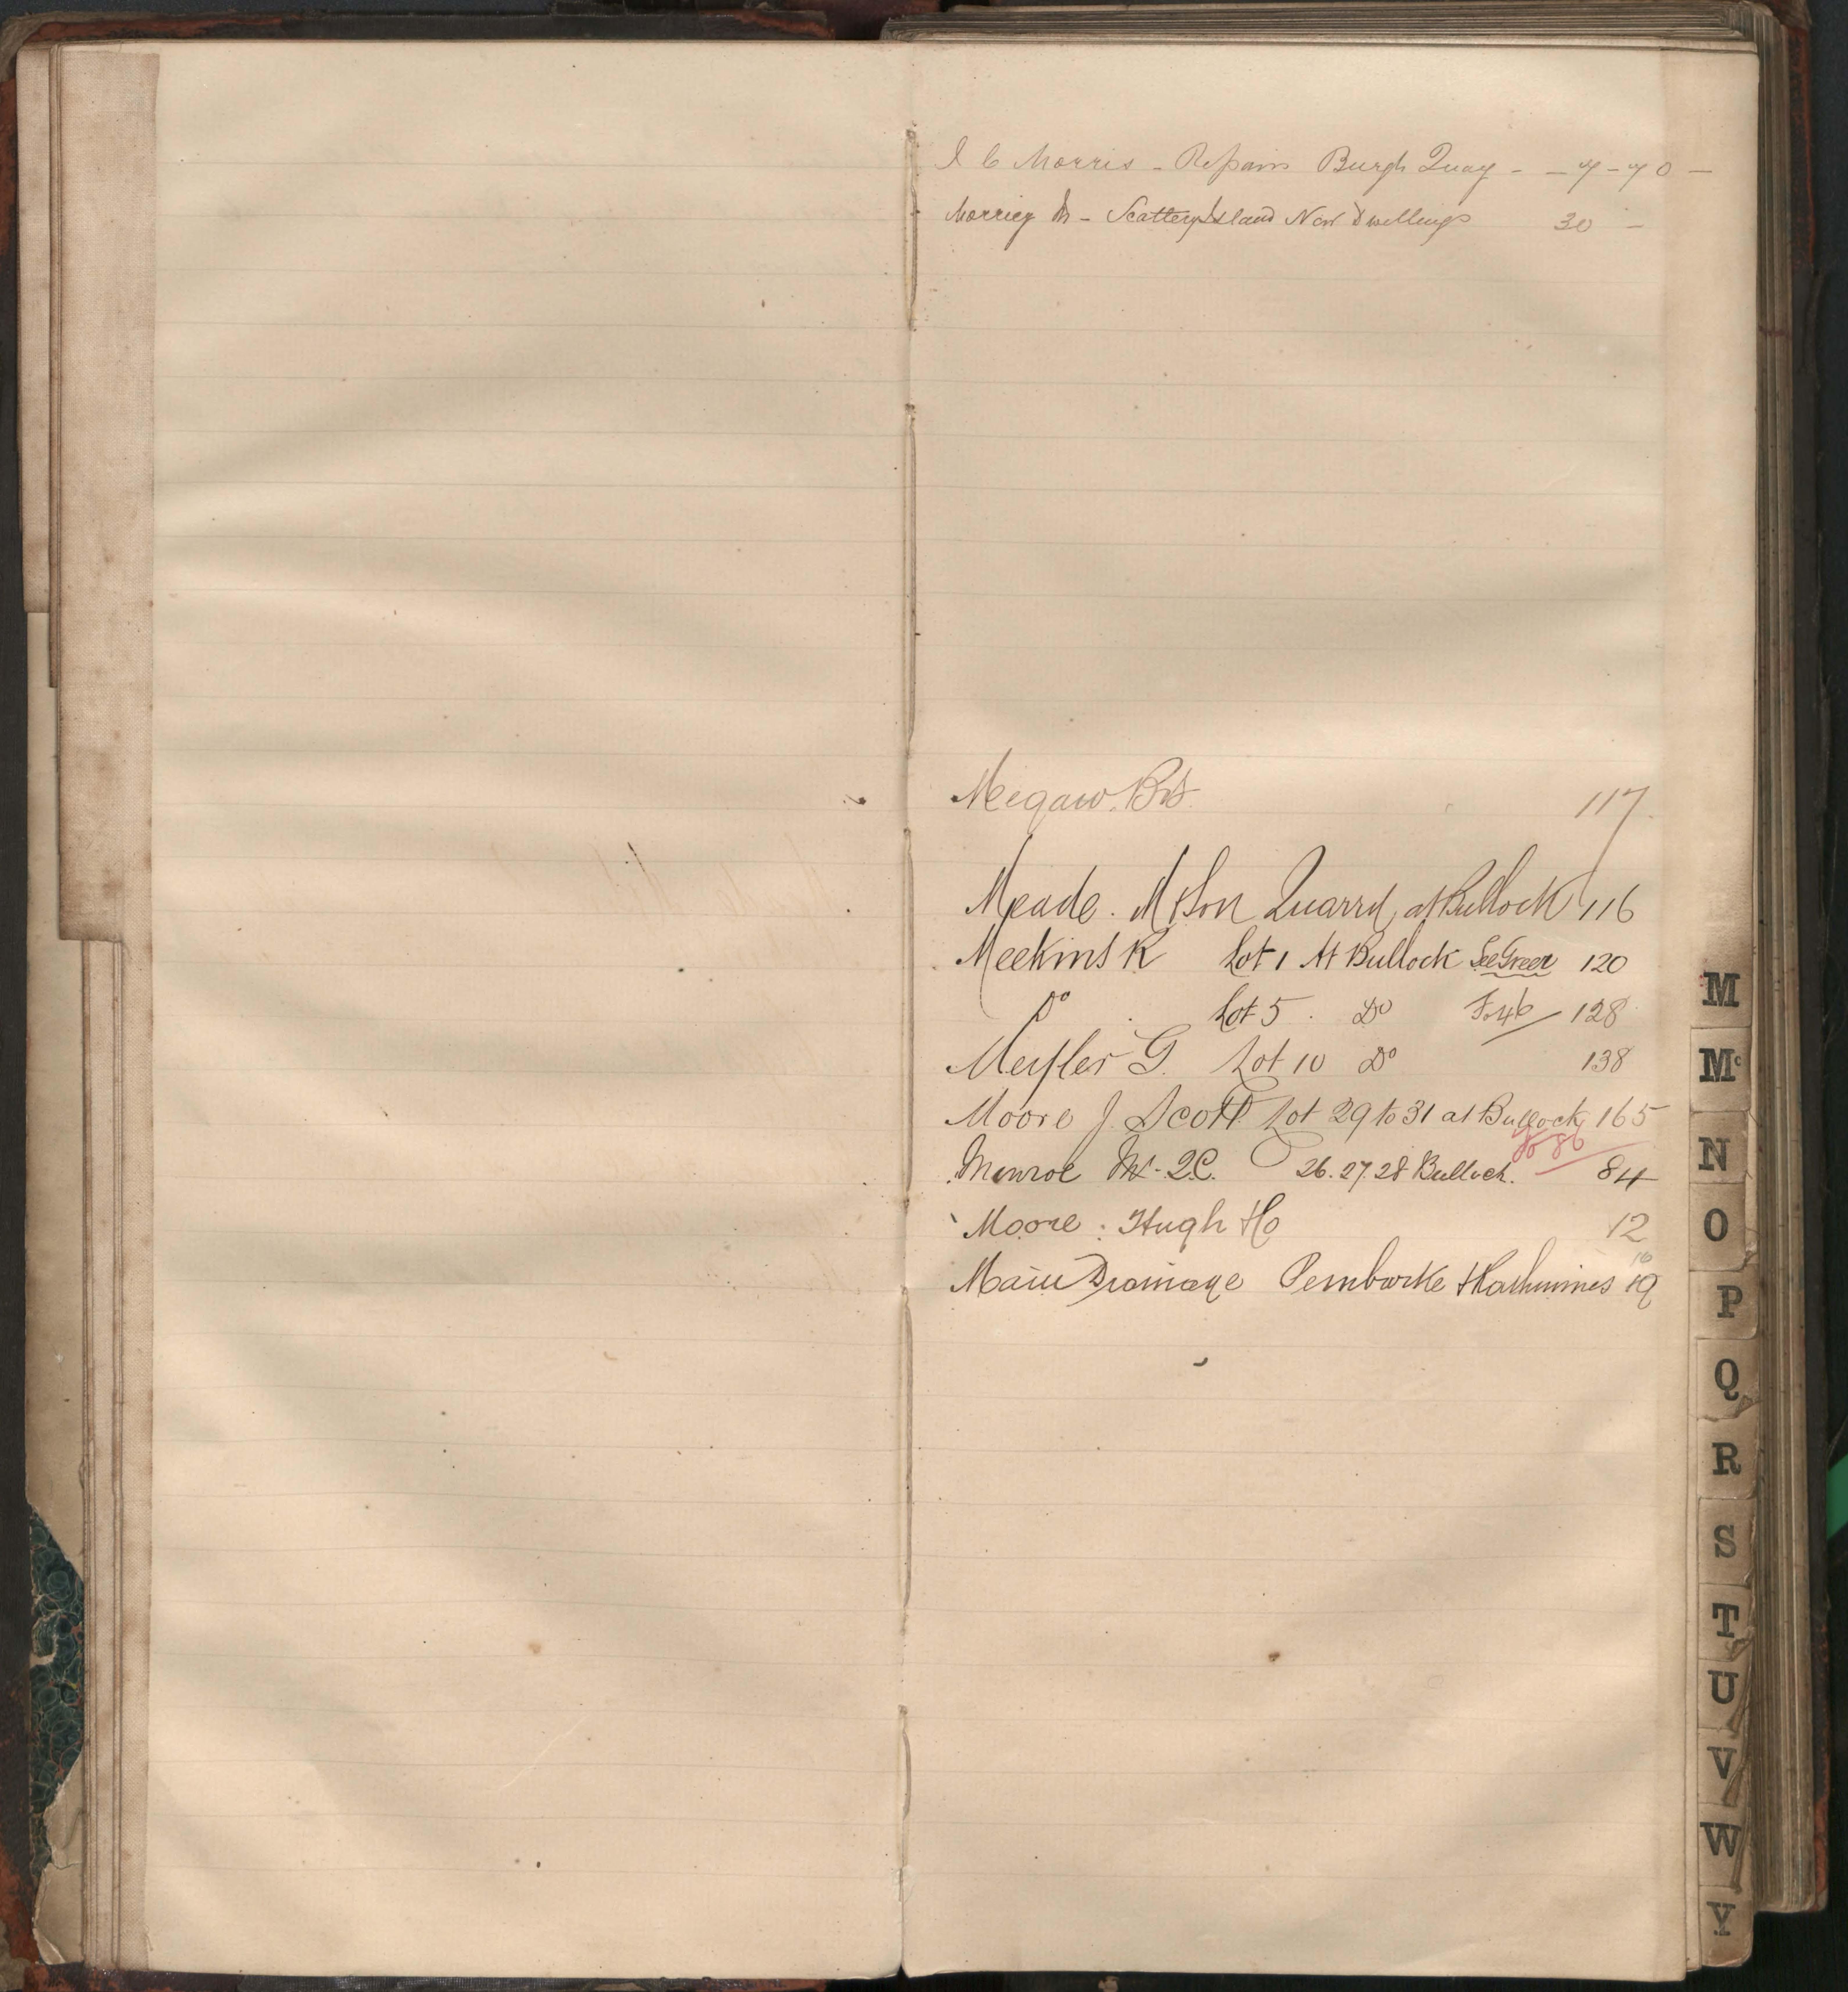 J C Morris - Repairs Burgh Quay - - 7 - 70 -
Morrisy M - Scattery Island New Dwellings 30 -
Megaw. Brs. 117
Meade. M & Son Quarry at Bullock 116
Meekins R Lot 1 At Bullock See Greer 120
Do Lot 5 Do Fo 46 128
Meyler G. Lot 10 Do 138
Moore J. Scott Lot 29 to 31 at Bullock 165
Fo 86
Monroe Mr. Q.C. 26. 27. 28 Bullock. 84
Moore : Hugh & Co 12
16
Main Drainage Pembroke & Rathmines 19
M
Mc
N
O
P
Q
R
S
T
U
V
W
Y